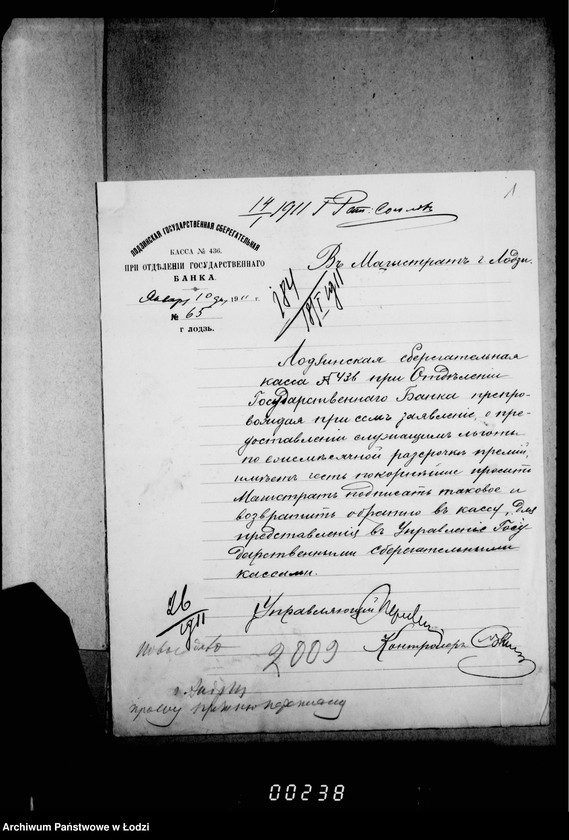 14/I 1911 г
1
ЛОДЗИНСКАЯ ГОСУДАРСТВЕННАЯ СБЕРЕГАТЕЛЬНАЯ
КАССА № 436.
ПРИ ОТДѢЛЕНІИ ГОСУДАРСТВЕННАГО
БАНКА.
Января 10 дня 1911 г.
№ 65
Г. ЛОДЗЬ.
Въ Магистратъ г. Лодзи.
184
18/I 1911
Лодзинская сберегательная
касса №436 при Отдѣленіи
Государственнаго Банка препро-
вождая при семъ заявленіе о пре-
доставленіи служащимъ льготы
по ежемѣсячной разсрочкѣ премій,
имѣетъ честь покорнѣйше просить
Магистратъ подписать таковое и
возвратить обратно въ кассу, для
представленія въ Управленіе Госу
дарственными сберегательными
кассами.
Управляющій
Контролеръ
26/1911
2009
прошу
00238
Archiwum Państwowe w Łodzi